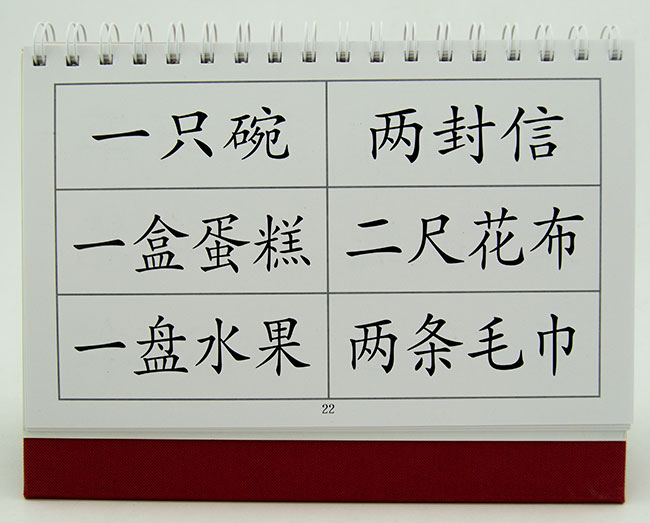 一只碗 两封信
一盒蛋糕 二尺花布
一盘水果 两条毛巾
22